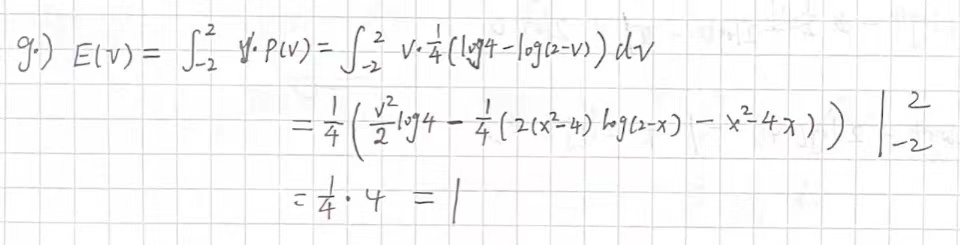 g.) E(V) = ∫_{-2}^{2} v·p(v) = ∫_{-2}^{2} v·1/4(log4-log(2-v)) dv
= 1/4(v²/2 log4 - 1/4(2(x²-4) log(2-x) - x²-4x)) |_{-2}^{2}
= 1/4 · 4 = 1